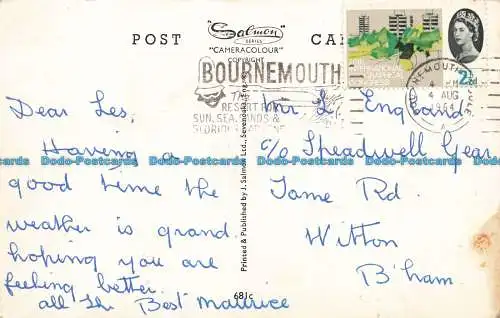 POST CARD
Salmon
SERIES
"CAMERACOLOUR"
COPYRIGHT
BOURNEMOUTH
THE
RESORT FOR
SUN, SEA, SANDS &
INTERNATIONAL
GEOGRAPHICAL
2½
BOURNEMOUTH-POOLE
4 AUG
1964
A
Dear Les.
Having a
good time the
weather is grand.
hoping you are
feeling better.
all the Best Maurice
Mr L. England
c/o Speadwell Gear
Tame Rd.
Witton
B'ham
Printed & Published by J. Salmon Ltd., Sevenoaks, Eng.
681c
Dodo-Postcards Dodo-Postcards Dodo-Postcards Dodo-Postcards